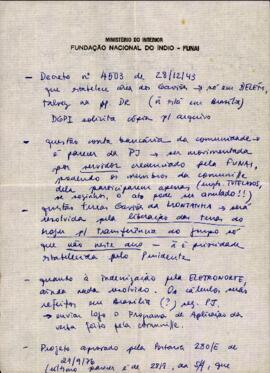 MINISTÉRIO DO INTERIOR
FUNDAÇÃO NACIONAL DO ÍNDIO - FUNAI
- Decreto nº 4503 de 28/12/43
que estabelece área dos Gavião → só em BELÉM,
talvez na DR (ñ está em Brasília)
DGPI solicita cópia p/ arquivo
- questão conta bancária da comunidade →
é parecer da PJ → ser movimentada
por servidor credenciado pela FUNAI,
podendo os membros da comunidade
dela participarem apenas (TUTELADOS,
se sozinhos, o ato pode ser anulado!!)
- questão terras Gavião da MONTANHA → será
resolvida pela liberação das terras do
p/ transferência do grupo só
que não neste ano - ñ é prioridade
estabelecida pelo Presidente
- quanto à indenização pela ELETRONORTE,
ainda nada resolvido. Os cálculos mais
refeitos em Brasília (?) seg. PJ.
→ enviar logo o Programa de Aplicações da
verba feito pela comunid.
- Projeto aprovado pela Portaria 280/E de
29/9/76
(último parecer é de 28/9, da